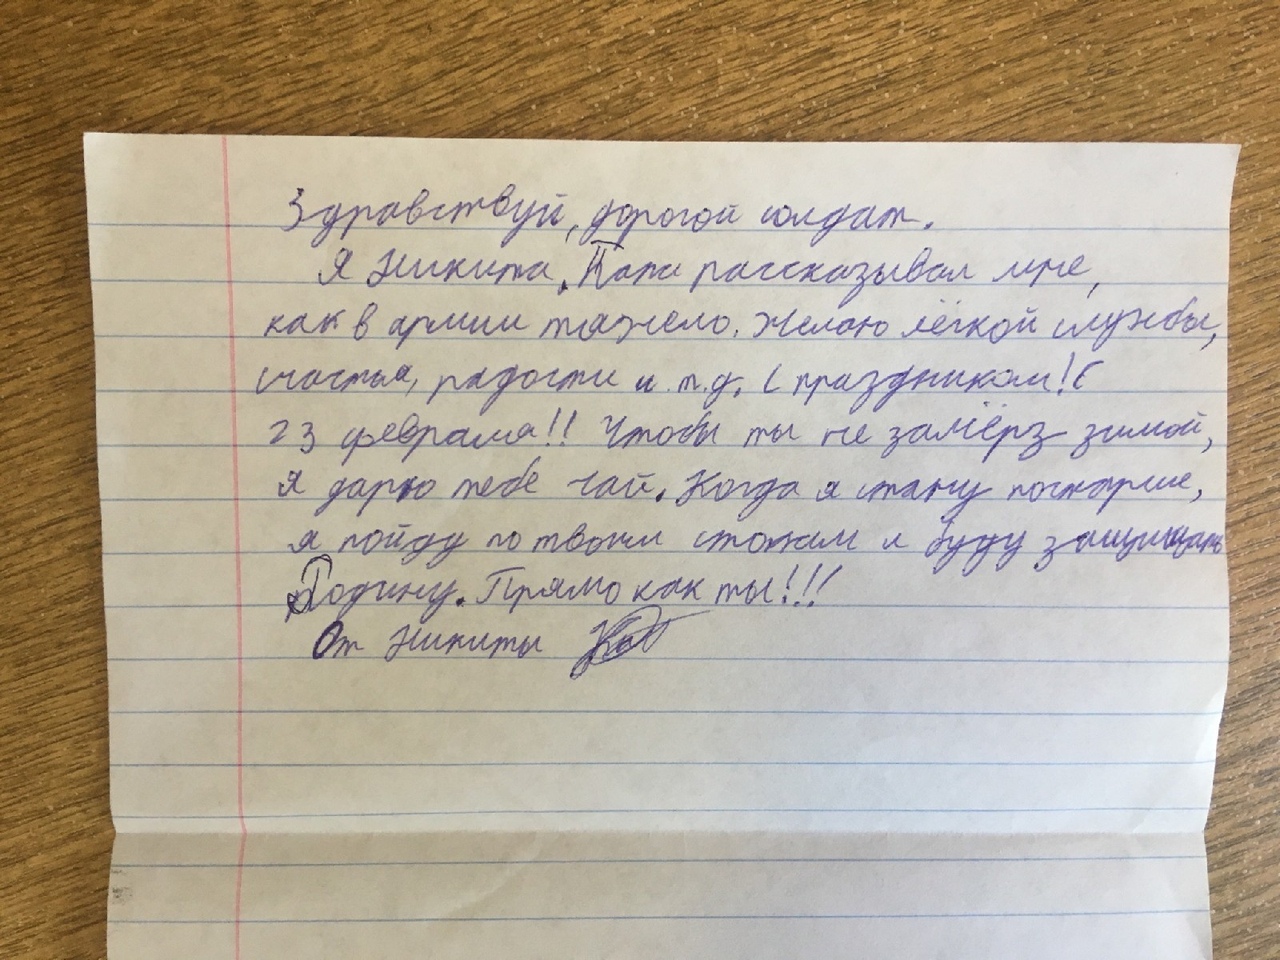 Здравствуй, дорогой солдат.
Я Никита. Папа рассказывал мне,
как в армии тяжело. Желаю лёгкой службы,
счастья, радости и т.д. С праздником! С
23 февраля!! Чтобы ты не замёрз зимой,
я дарю тебе чай. Когда я стану постарше,
я пойду по твоим стопам и буду защищать
Родину. Прямо как ты!!!
От Никиты